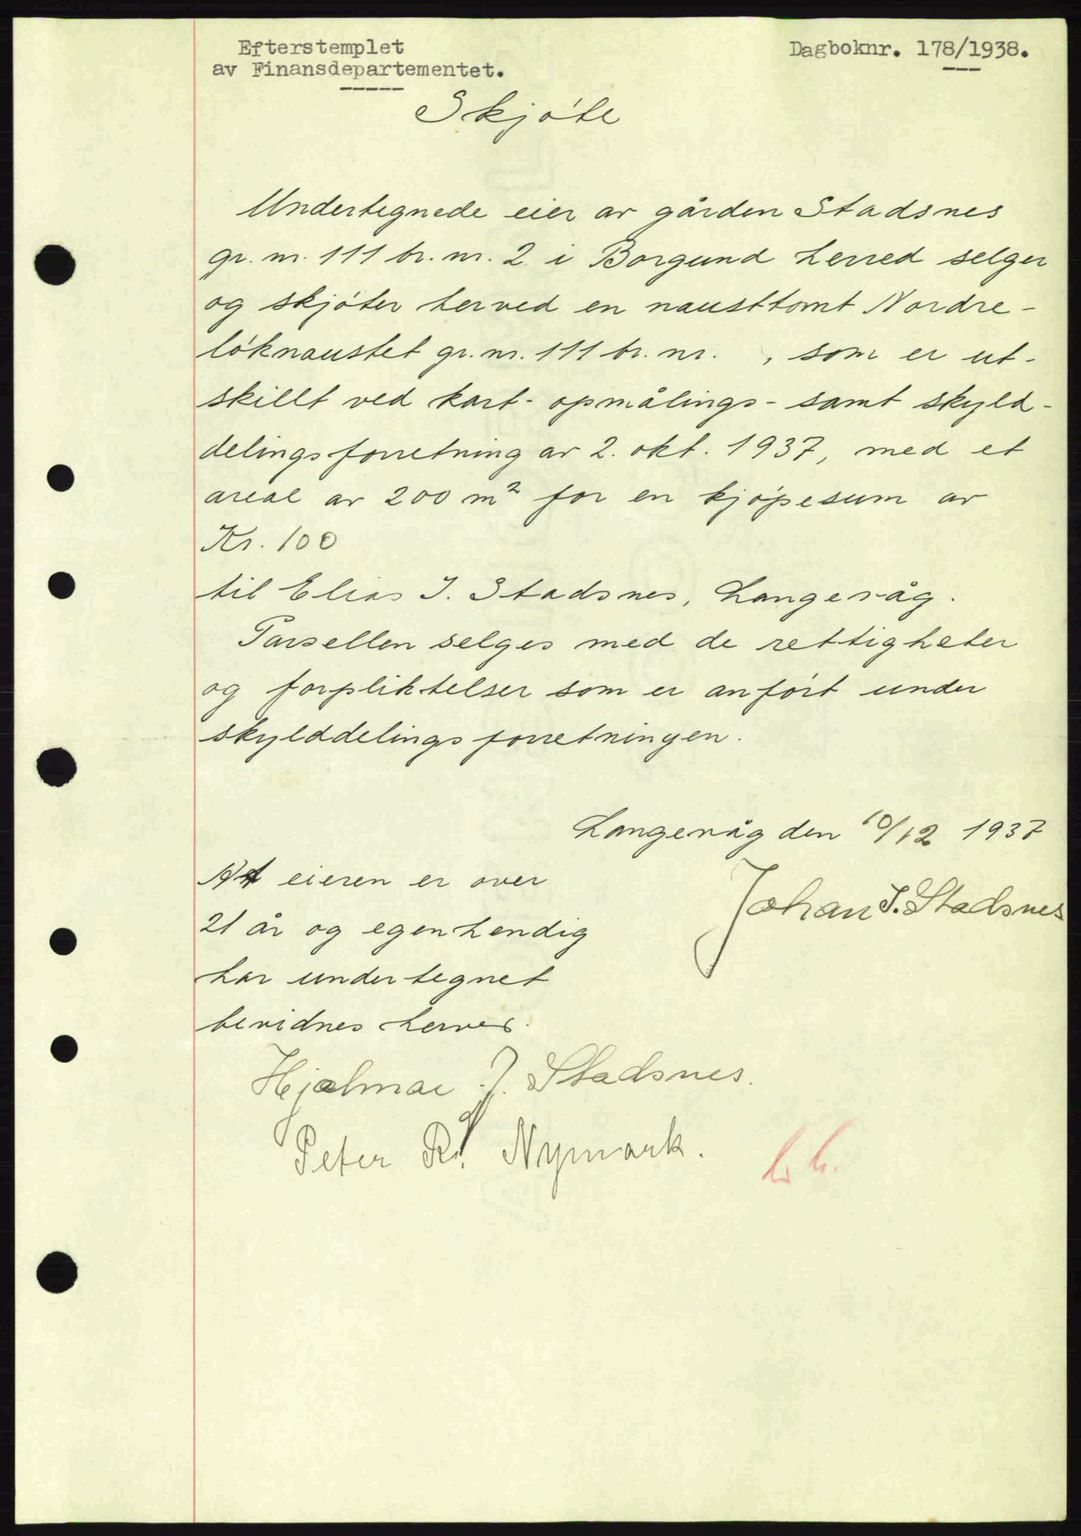 Efterstemplet
av Finansdepartementet.
Dagboknr. 178/1938.
Skjøte
Undertegnede eier av gården Stadsnes
gr. nr. 111 br. nr. 2 i Borgund herred selger
og skjøter herved en nausttomt Nordre-
løknaustet gr. nr. 111 br. nr.    , som er ut-
skillt ved kart- opmålings- samt skyld-
delingsforretning av 2. okt. 1937, med et
areal av 200 m² for en kjøpesum av
Kr. 100
til Elias J. Stadsnes, Langevåg.
Parsellen selges med de rettigheter
og forpliktelser som er anført under
skylddelingsforretningen.
Langevåg den 10/12 1937
Johan J. Stadsnes
At eieren er over
21 år og egenhendig
har undertegnet
bevidnes herved.
Hjalmar J. Stadsnes.
Peter R. Nymark.